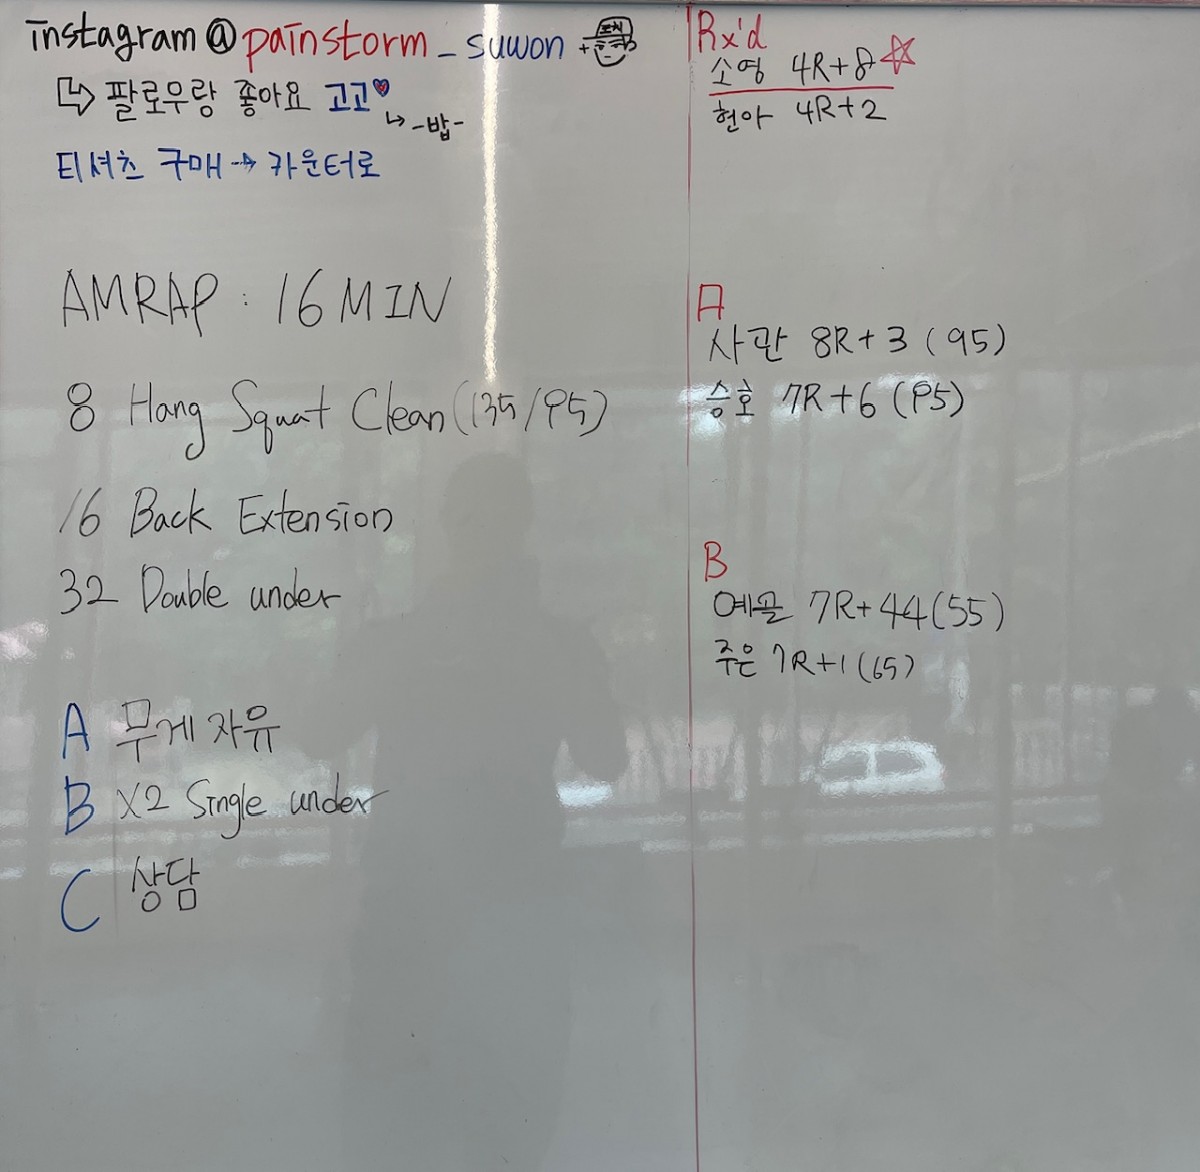 instagram@painstorm_suwon
팔로우랑 좋아요 고고
-밥-
티셔츠 구매→카운터로
AMRAP : 16 MIN
8 Hang Squat Clean(135/95)
16 Back Extension
32 Double under
A 무게 자유
B X2 Single under
C 상담
Rx'd
소영 4R+8
현아 4R+2
A
사관 8R+3 (95)
승호 7R+6 (95)
B
예골 7R+44(55)
주은 7R+1(65)